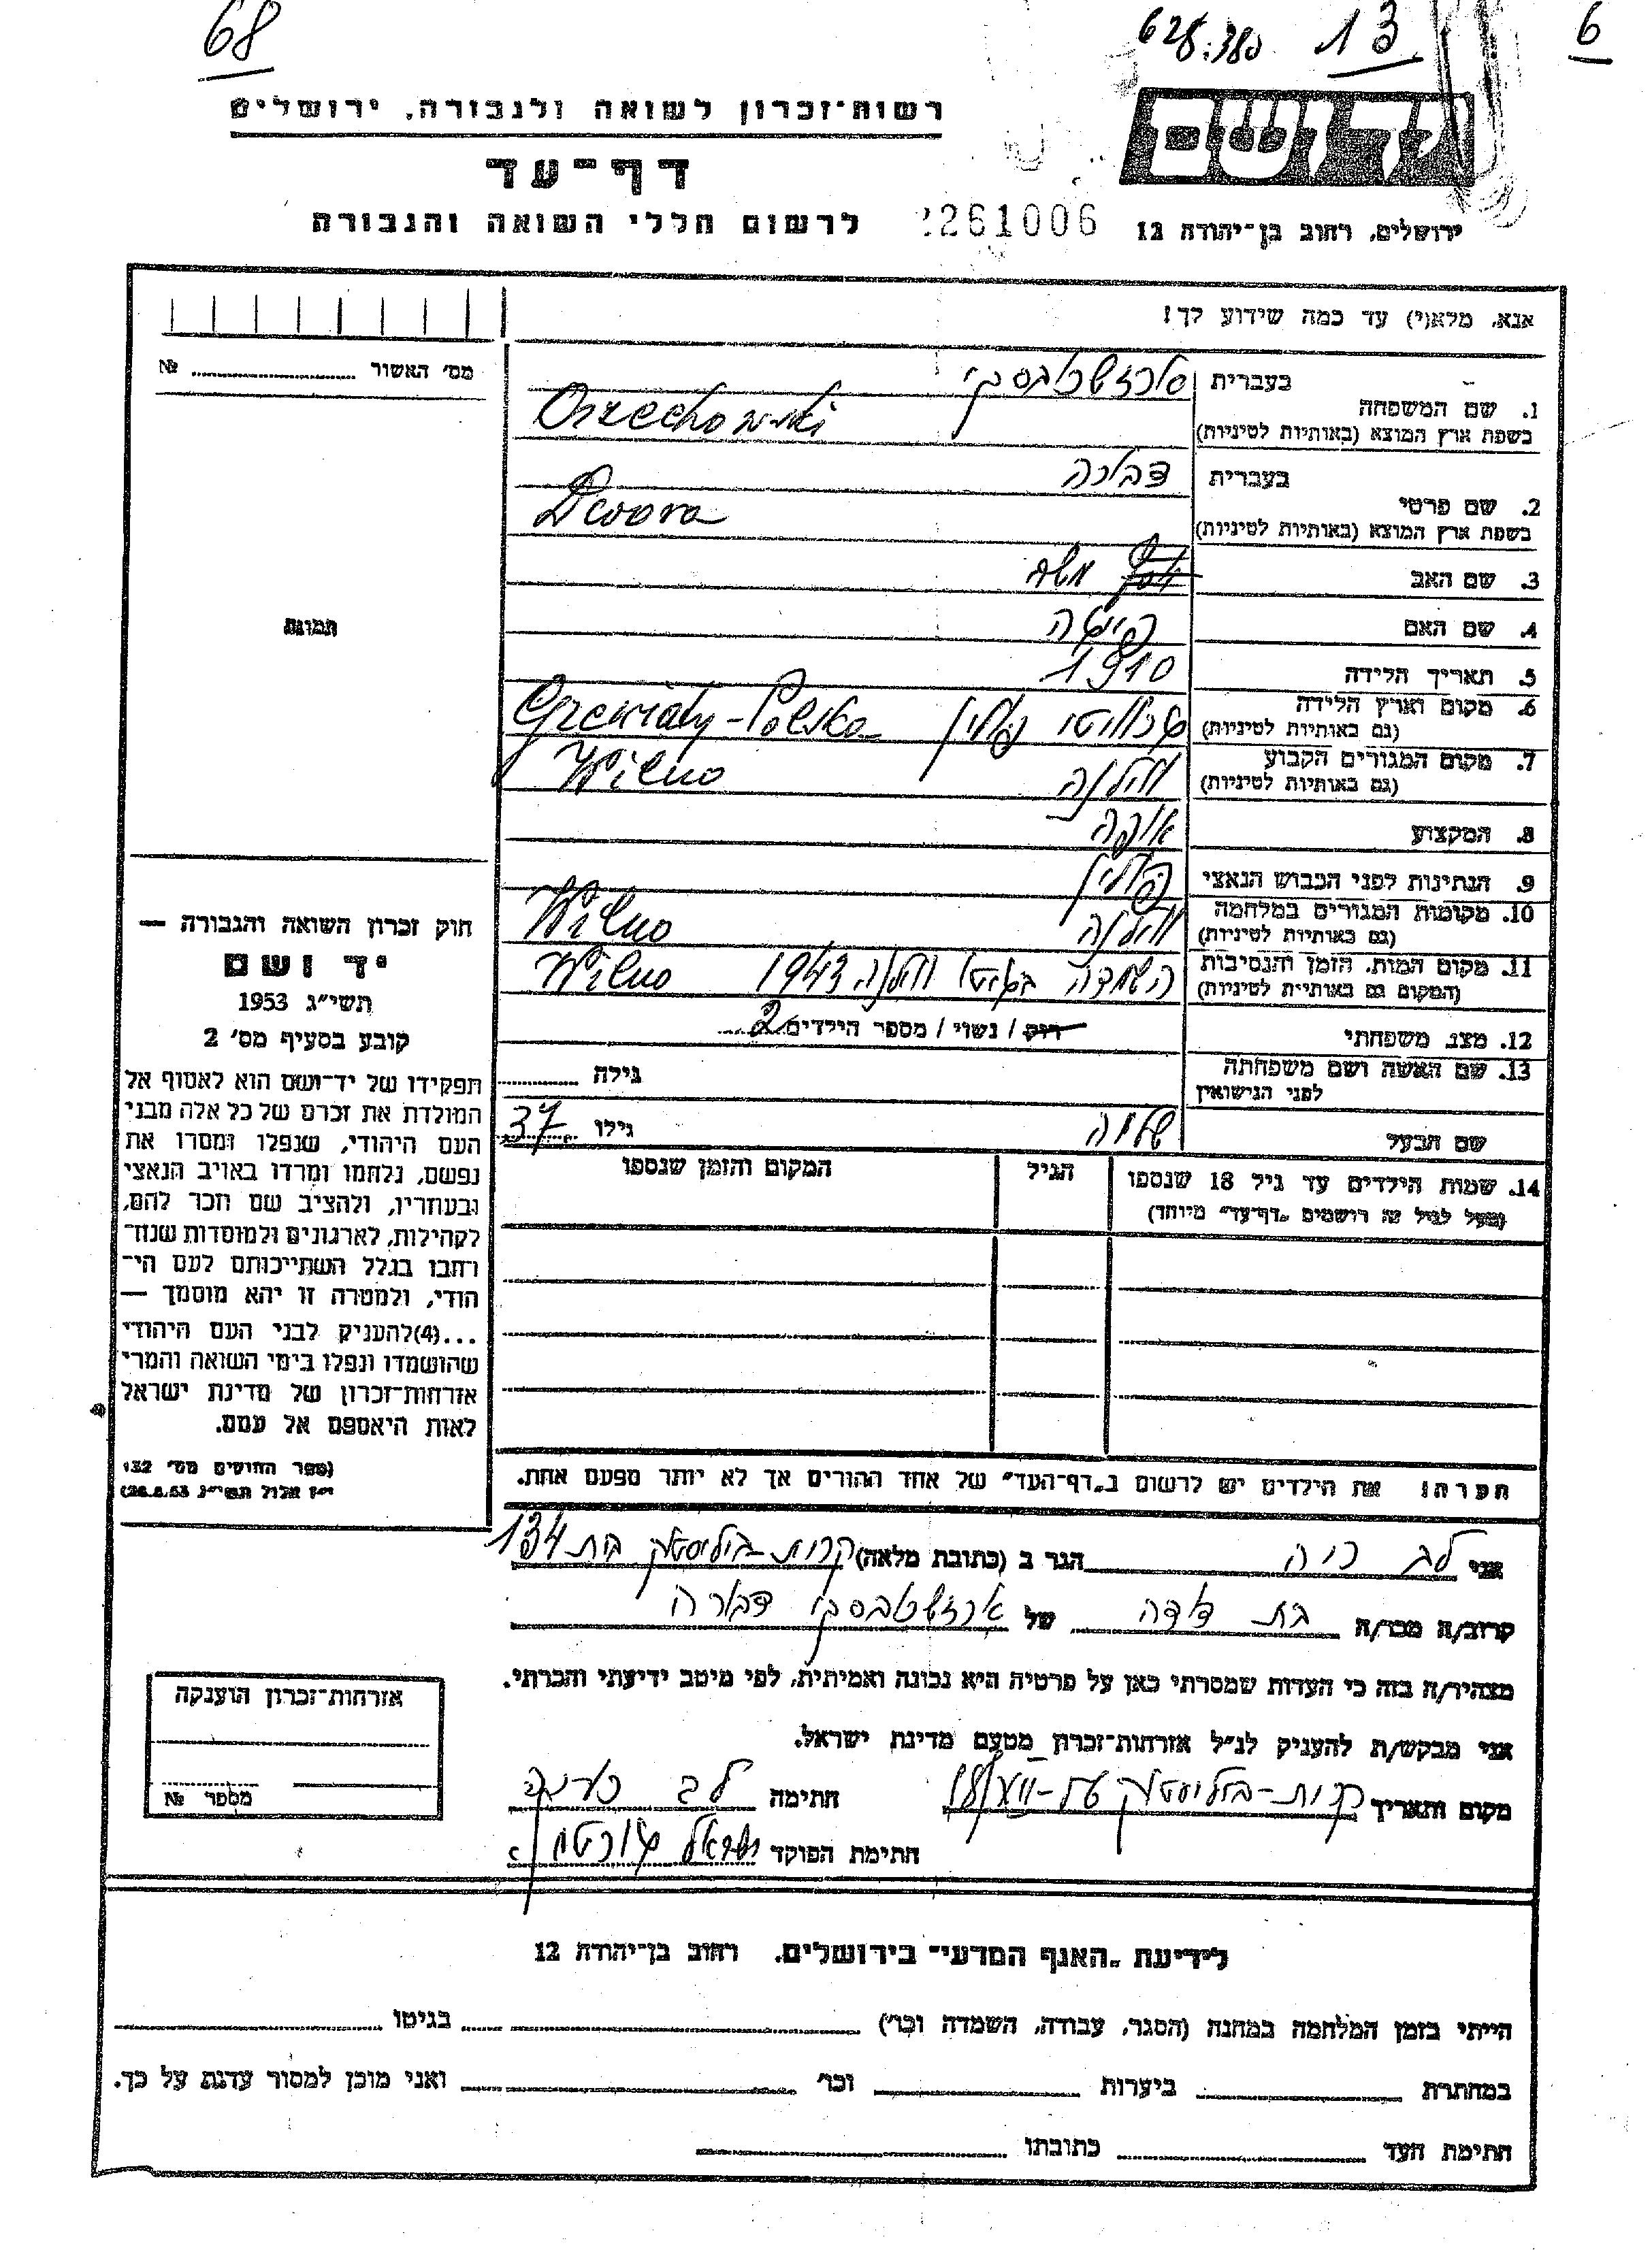 68
628.380 13 6
רשות־זכרון לשואה ולגבורה, ירושלים
דף־עד
לרשום חללי השואה והגבורה
2261006
ירושלים, רחוב בן־יהודה 12
אנא, מלא(י) עד כמה שידוע לך!
מס׳ האשור ........ №
תמונה
1. שם המשפחה
בעברית
בשפת ארץ המוצא (באותיות לטיניות) Orzechowski
2. שם פרטי
בעברית דבורה
בשפת ארץ המוצא (באותיות לטיניות) Dwora
3. שם האב משה
4. שם האם
5. תאריך הלידה 1910
6. מקום וארץ הלידה
(גם באותיות לטיניות) פולין -Polska
7. מקום המגורים הקבוע
(גם באותיות לטיניות) וילנה Wilno
8. המקצוע
9. הנתינות לפני הכבוש הנאצי פולין
10. מקומות המגורים במלחמה
(גם באותיות לטיניות) וילנה Wilno
11. מקום המות, הזמן והנסיבות
(המקום גם באותיות לטיניות) השמדה בגיטו וילנה 1943 Wilno
12. מצב משפחתי רוק / נשוי / מספר הילדים 2
13. שם האשה ושם משפחתה
לפני הנישואין גילה ........
שם הבעל שלמה גילו 37
14. שמות הילדים עד גיל 18 שנספו
(מעל לגיל זה רושמים „דף־עד״ מיוחד)
הגיל
המקום והזמן שנספו
הערה! את הילדים יש לרשום ב„דף־העד״ של אחד ההורים אך לא יותר מפעם אחת.
חוק זכרון השואה והגבורה —
יד ושם
תשי״ג 1953
קובע בסעיף מס׳ 2
תפקידו של יד־ושם הוא לאסוף אל
המולדת את זכרם של כל אלה מבני
העם היהודי, שנפלו ומסרו את
נפשם, נלחמו ומרדו באויב הנאצי
ובעוזריו, ולהציב שם וזכר להם,
לקהילות, לארגונים ולמוסדות שנח־
רבו בגלל השתייכותם לעם הי־
הודי, ולמטרה זו יהא מוסמך —
...(4)להעניק לבני העם היהודי
שהושמדו ונפלו בימי השואה והמרי
אזרחות־זכרון של מדינת ישראל
לאות היאספם אל עמם.
(ספר החוקים מס׳ 132,
י״ז אלול תשי״ג 28.8.53)
אני לב הגר ב (כתובת מלאה) קרית-ביליסטוק בית 134
קרוב/ה מכר/ה בת דודה של דבורה
מצהיר/ה בזה כי העדות שמסרתי כאן על פרטיה היא נכונה ואמיתית, לפי מיטב ידיעתי והכרתי.
אני מבקש/ת להעניק לנ״ל אזרחות־זכרון מטעם מדינת ישראל.
מקום ותאריך קרית-ביליסטוק חתימה לב
חתימת הפוקד ישראל
אזרחות־זכרון הוענקה
מספר №
לידיעת „האגף המדעי״ בירושלים, רחוב בן־יהודה 12
הייתי בזמן המלחמה במחנה (הסגר, עבודה, השמדה וכו׳) בגיטו
במחתרת ביערות וכו׳ ואני מוכן למסור עדות על כך.
חתימת העד כתובתו